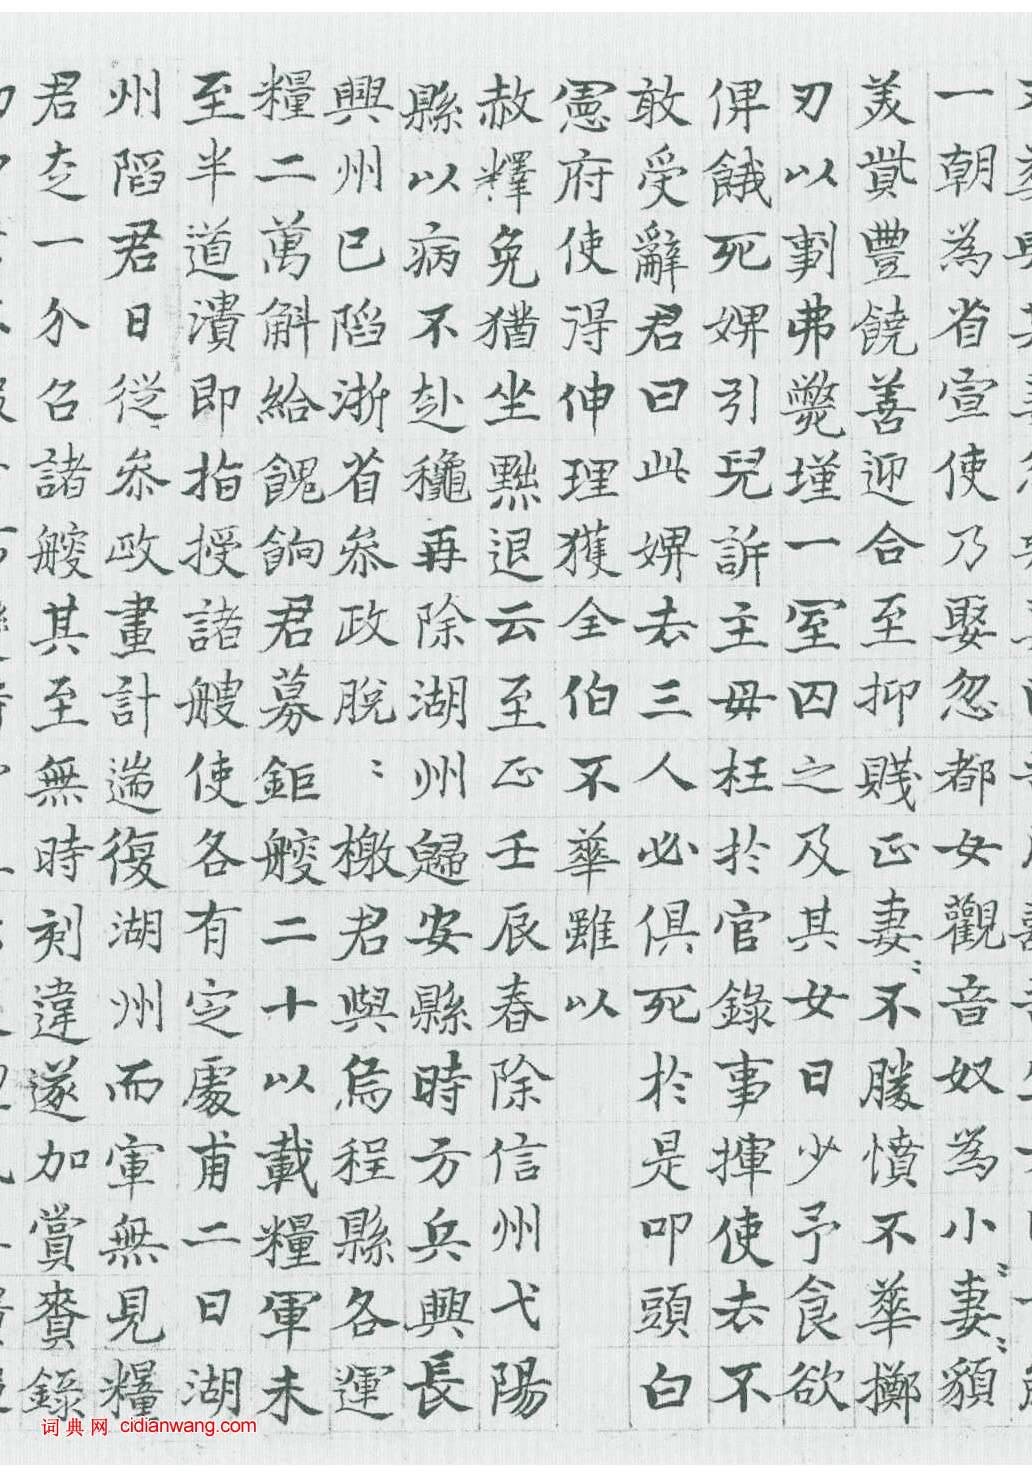 一朝為省宣使乃娶忽都女觀音奴為小〻妻〻貌
美貲豐饒善迎合至抑賤正妻〻不勝憤不華擲
刃以剚弗斃墐一室囚之及其女日少予食欲
俾餓死婢引兒訴主毋枉於官錄事揮使去不
敢受辭君曰此婢去三人必俱死於是叩頭白
憲府使得伸理獲全伯不華雖以
赦釋免猶坐黜退云至正壬辰春除信州弋陽
縣以病不赴穐再除湖州歸安縣時方兵興長
興州已陷浙省叅政脫〻檄君與烏程縣各運
糧二萬斛給餽餉君募鉅艘二十以載糧軍未
至半道潰即指授諸艘使各有定處甫二日湖
州陷君日從叅政畫計遄復湖州而軍無見糧
君走一介召諸艘其至無時刻違遂加賞賚錄
词典网 cidianwang.com